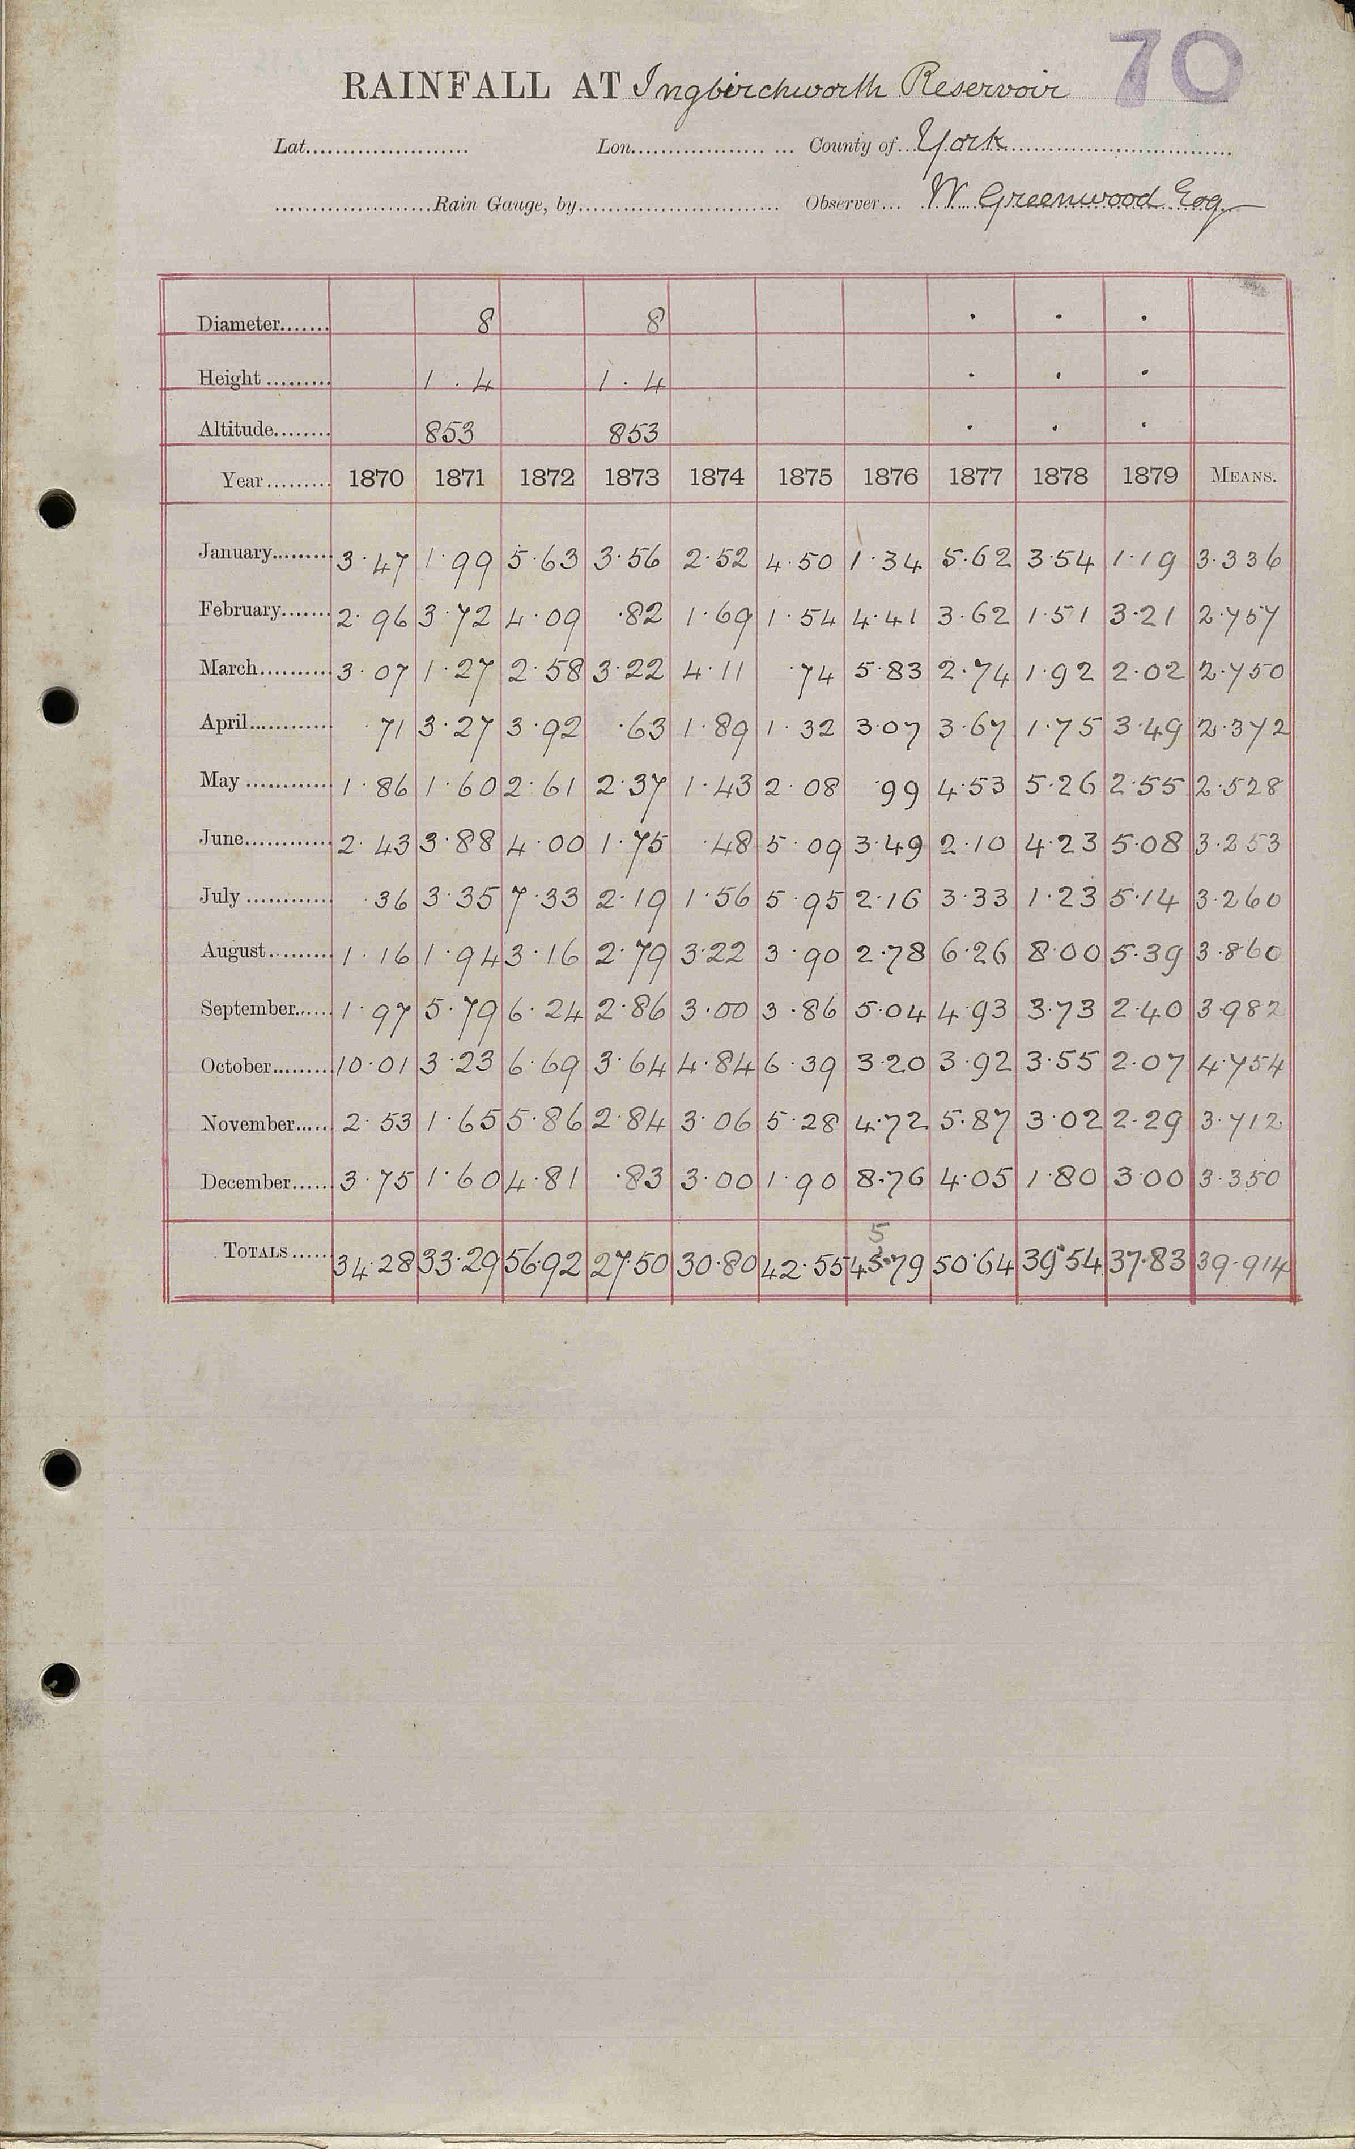 70
RAINFALL AT Ingbirchworth Reservoir
Lat...................... Lon.................. ... County of... York
.....................Rain Gauge, by........................... Observer... W Greenwood Esq
Diameter....... 8 8 . . .
Height ......... 1.4 1.4 . . .
Altitude........ 853 853 . . .
Year......... 1870 1871 1872 1873 1874 1875 1876 1877 1878 1879 MEANS.
January......... 3.47 1.99 5.63 3.56 2.52 4.50 1.34 5.62 3.54 1.19 3.336
February....... 2.96 3.72 4.09 .82 1.69 1.54 4.41 3.62 1.51 3.21 2.757
March.......... 3.07 1.27 2.58 3.22 4.11 .74 5.83 2.74 1.92 2.02 2.750
April............ .71 3.27 3.92 .63 1.89 1.32 3.07 3.67 1.75 3.49 2.372
May ............ 1.86 1.60 2.61 2.37 1.43 2.08 .99 4.53 5.26 2.55 2.528
June............ 2.43 3.88 4.00 1.75 .48 5.09 3.49 2.10 4.23 5.08 3.253
July ............ .36 3.35 7.33 2.19 1.56 5.95 2.16 3.33 1.23 5.14 3.260
August.......... 1.16 1.94 3.16 2.79 3.22 3.90 2.78 6.26 8.00 5.39 3.860
September...... 1.97 5.79 6.24 2.86 3.00 3.86 5.04 4.93 3.73 2.40 3.982
October........ 10.01 3.23 6.69 3.64 4.84 6.39 3.20 3.92 3.55 2.07 4.754
November..... 2.53 1.65 5.86 2.84 3.06 5.28 4.72 5.87 3.02 2.29 3.712
December..... 3.75 1.60 4.81 .83 3.00 1.90 8.76 4.05 1.80 3.00 3.350
5
TOTALS..... 34.28 33.29 56.92 27.50 30.80 42.55 45.79 50.64 39.54 37.83 39.914